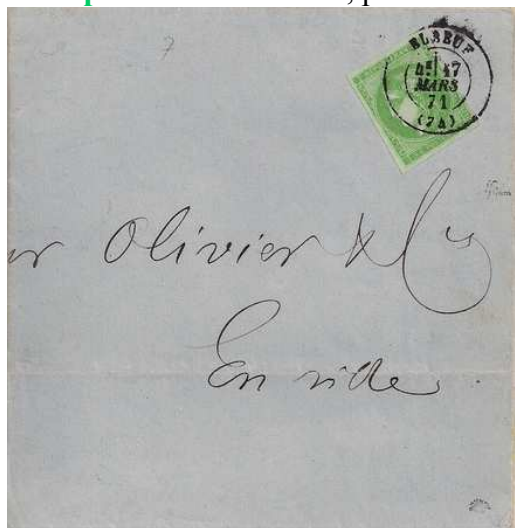 7
ELBEUF
17
MARS
71
(74)
er Olivier & Cie
En ville